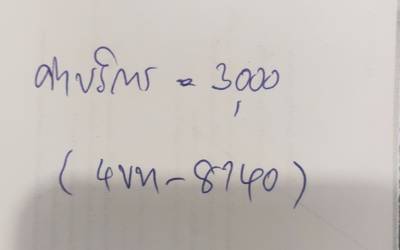 ค่าบริการ = 3,000
(4ขท-8740)